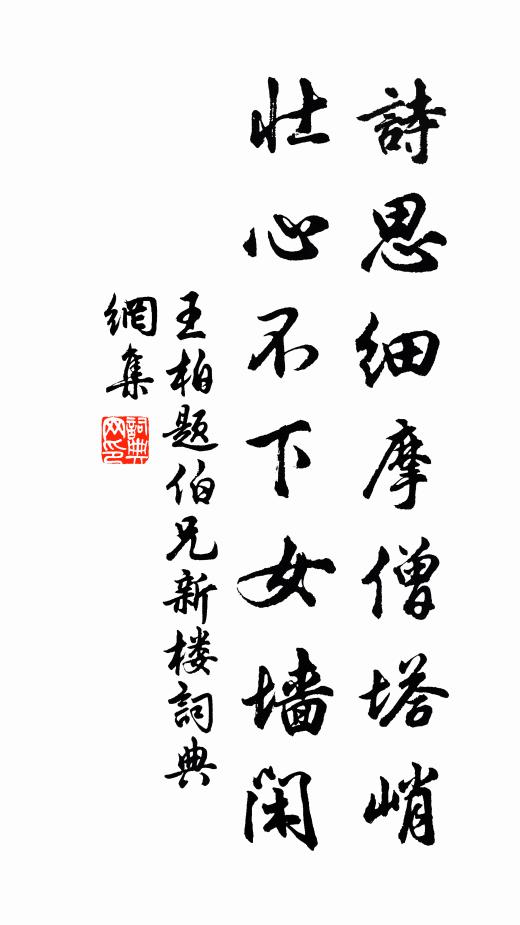 詩思细摩僧塔峭
壮心不下女墙闲
王柏题伯兄新楼詞典
網集
詞典
网印